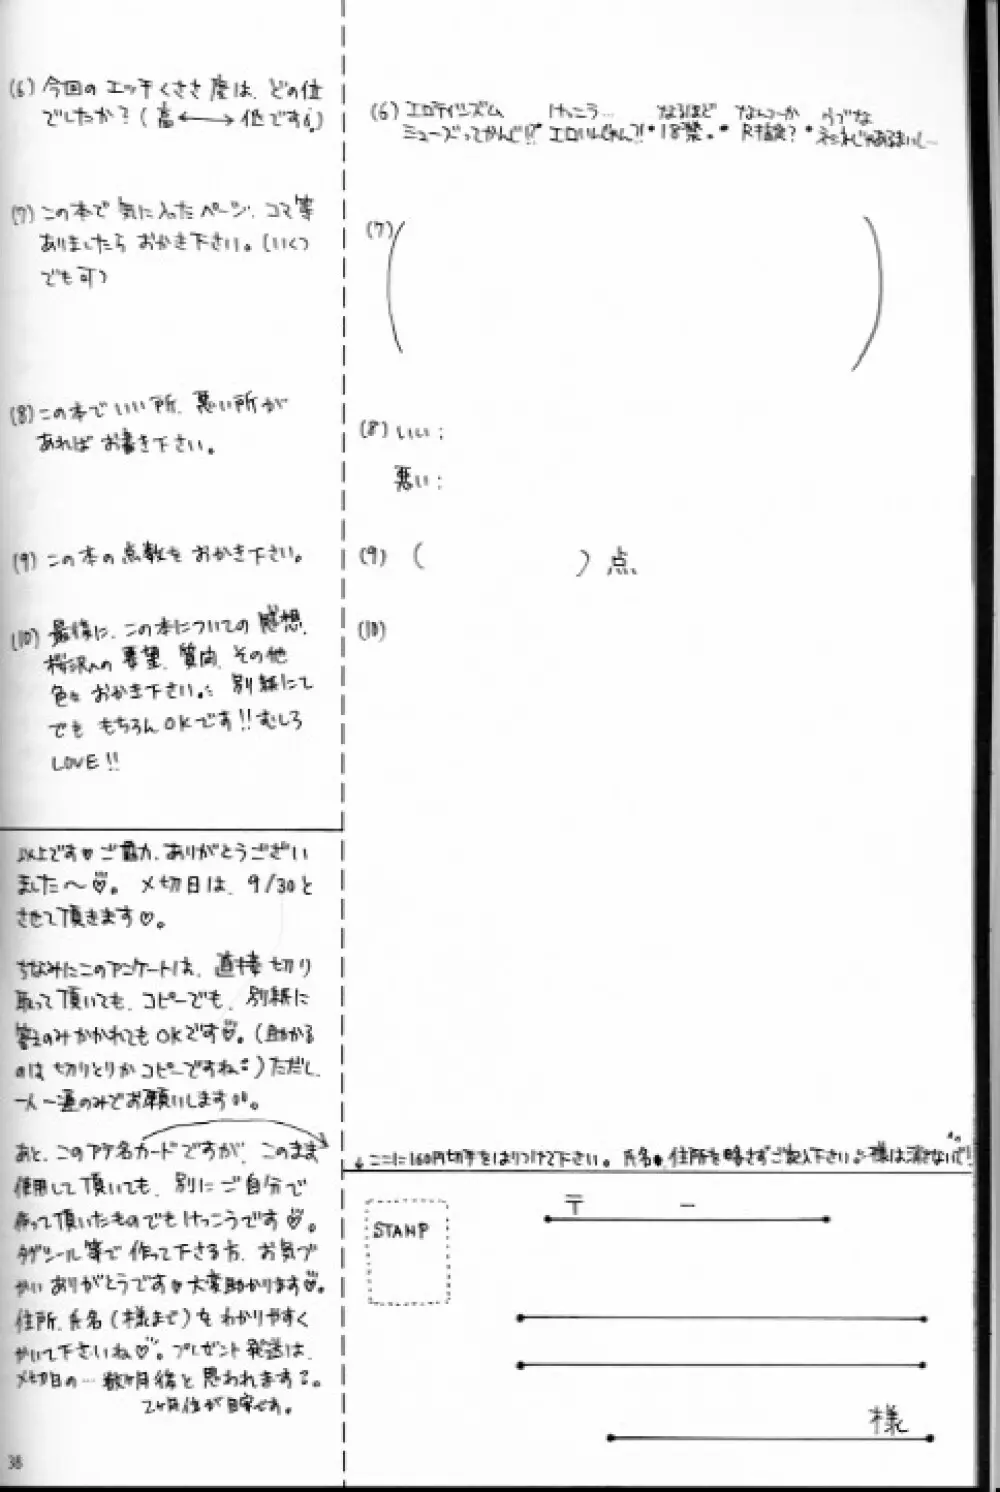 (6) 今回のエッチくささ度は、どの位
でしたか？(高←→低です。)
(7) この本で気に入ったページ、コマ等
ありましたらおかき下さい。(いくつ
でも可)
(8) この本でいい所、悪い所が
あればお書き下さい。
(9) この本の点数をおかき下さい。
(10) 最後に、この本についての感想、
桜沢への要望、質問、その他
色々おかき下さい。別紙にて
でももちろんOKです!!むしろ
LOVE!!
以上です♥ご協力、ありがとうござい
ました〜♡。〆切日は、9/30と
させて頂きます♡。
ちなみにこのアンケートは、直接切り
取って頂いても、コピーでも、別紙に
答えのみかかれてもOKです♡。(助かる
のは切りとりかコピーですね)ただし、
一人一通のみでお願いします。
あと、このアテ名カードですが、このまま
使用して頂いても、別にご自分で
作って頂いたものでもけっこうです♡。
タグシール等で作って下さる方、お気づ
かいありがとうです♥大変助かります♡。
住所、氏名(様まで)をわかりやすく
かいて下さいね♡。プレゼント発送は、
〆切日の…数ヶ月後と思われます。
2ヶ月位が目安です。
38
(6) エロティシズム けっこう… なるほど なんつーか うぶな
ミューズってかんじ!?・エロいじゃん?!・18禁。・R指定?・ネンネじゃあるまいし…
(7) ( )
(8) いい:
悪い:
(9) ( )点
(10)
↓ここに160円切手をはりつけて下さい。氏名・住所を略さずご記入下さい♪様は消さないで!
STAMP
〒 －
様